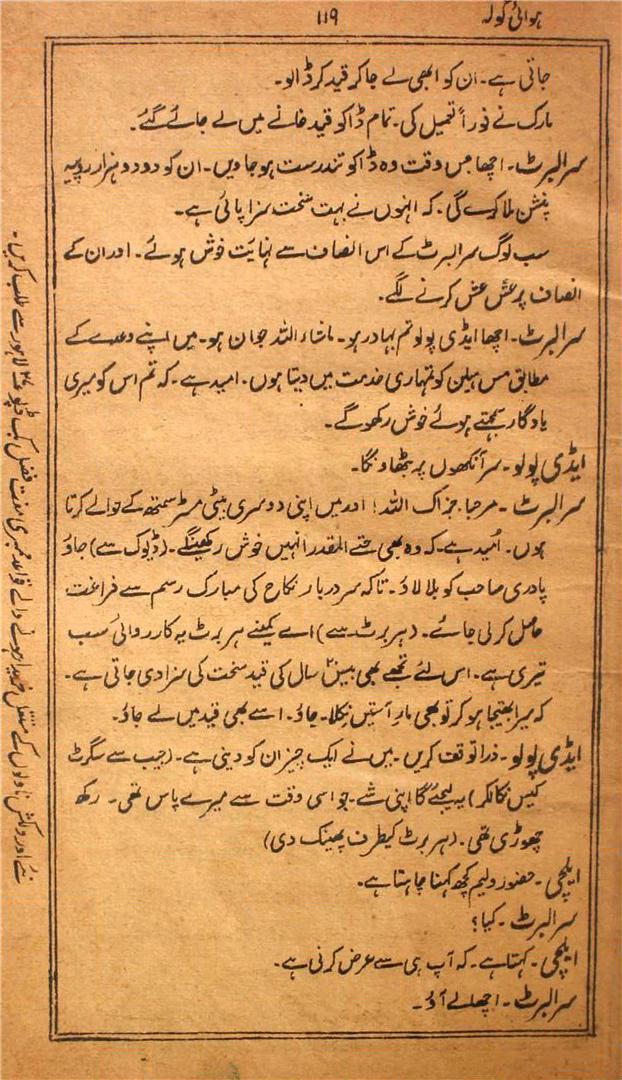 ہوائی گولہ
۱۱۹
جاتی ہے۔ ان کو ابھی لے جا کر قید کر ڈالو۔
مارک نے فوراً تعمیل کی۔ تمام ڈاکو قید خانے میں لے جائے گئے۔
سرالبرٹ۔ اچھا جس وقت وہ ڈاکو تندرست ہو جاویں۔ ان کو دو دو ہزار روپیہ
پنشن ملا کرے گی۔ کہ انہوں نے بہت سخت سزا پائی ہے۔
سب لوگ سرالبرٹ کے اس انصاف سے نہایت خوش ہوئے۔ اور ان کے
انصاف پر عش عش کرنے لگے۔
سرالبرٹ۔ اچھا ایڈی پولو تم بہادر ہو۔ ماشاء اللہ جوان ہو۔ میں اپنے وعدے کے
مطابق مس ہیلن کو تمہاری خدمت میں دیتا ہوں۔ امید ہے۔ کہ تم اس کو میری
یادگار سمجھتے ہوئے خوش رکھو گے۔
ایڈی پولو۔ سر آنکھوں پر بٹھاؤنگا۔
سرالبرٹ۔ مرحبا۔ جزاک اللہ! اور میں اپنی دوسری بیٹی مسٹر سمتھ کے حوالے کرتا
ہوں۔ اُمید ہے۔ کہ وہ بھی حتے المقدر انہیں خوش رکھینگے۔ (ڈیوک سے) جاؤ
پادری صاحب کو بلا لاؤ۔ تاکہ سر دربار نکاح کی مبارک رسم سے فراغت
حاصل کر لی جائے۔ (ہربرٹ سے) اے کمینے ہربرٹ یہ کارروائی سب
تیری ہے۔ اس لئے تجھے بھی بیس ۲۰ سال کی قید سخت کی سزا دی جاتی ہے۔
کہ میرا بھتیجا ہو کر تو بھی مار آستیں نکلا۔ جاؤ۔ اسے بھی قید میں لے جاؤ۔
ایڈی پولو۔ ذرا توقف کریں۔ میں نے ایک چیز ان کو دینی ہے۔ (جیب سے سگرٹ
کیس نکالکر) یہ لیجئے گا اپنی شے۔ جو اسی وقت سے میرے پاس تھی۔ رکھ
چھوڑی تھی۔ (ہربرٹ کیطرف پھینک دی)
ایلچی۔ حضور ولیم کچھ کہنا چاہتا ہے۔
سرالبرٹ۔ کیا؟
ایلچی۔ کہتا ہے۔ کہ آپ ہی سے عرض کرنی ہے۔
سرالبرٹ۔ اچھا لے آؤ۔
نئے اور دلکش ناولوں کے مستقل خریدار ہونے والے قواعد ممبری مفت فضل بک ڈپو لاہور سے طلب کریں۔